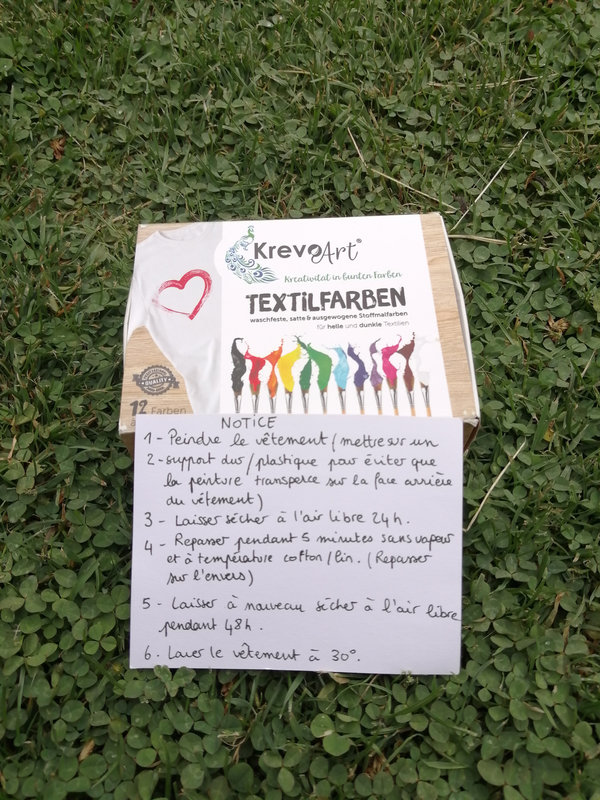 KrevoArt®
Kreativität in bunten Farben
TEXTILFARBEN
waschfeste, satte & ausgewogene Stoffmalfarben
für helle und dunkle Textilien
QUALITY
12 Farben
NOTICE
1 - Peindre le vêtement (mettre sur un
2 - support dur / plastique pour éviter que
la peinture transperce sur la face arrière
du vêtement)
3 - Laisser sécher à l'air libre 24h.
4 - Repasser pendant 5 minutes sans vapeur
et à température cotton / lin. (Repasser
sur l'envers)
5 - Laisser à nouveau sécher à l'air libre
pendant 48h.
6. Laver le vêtement à 30°.